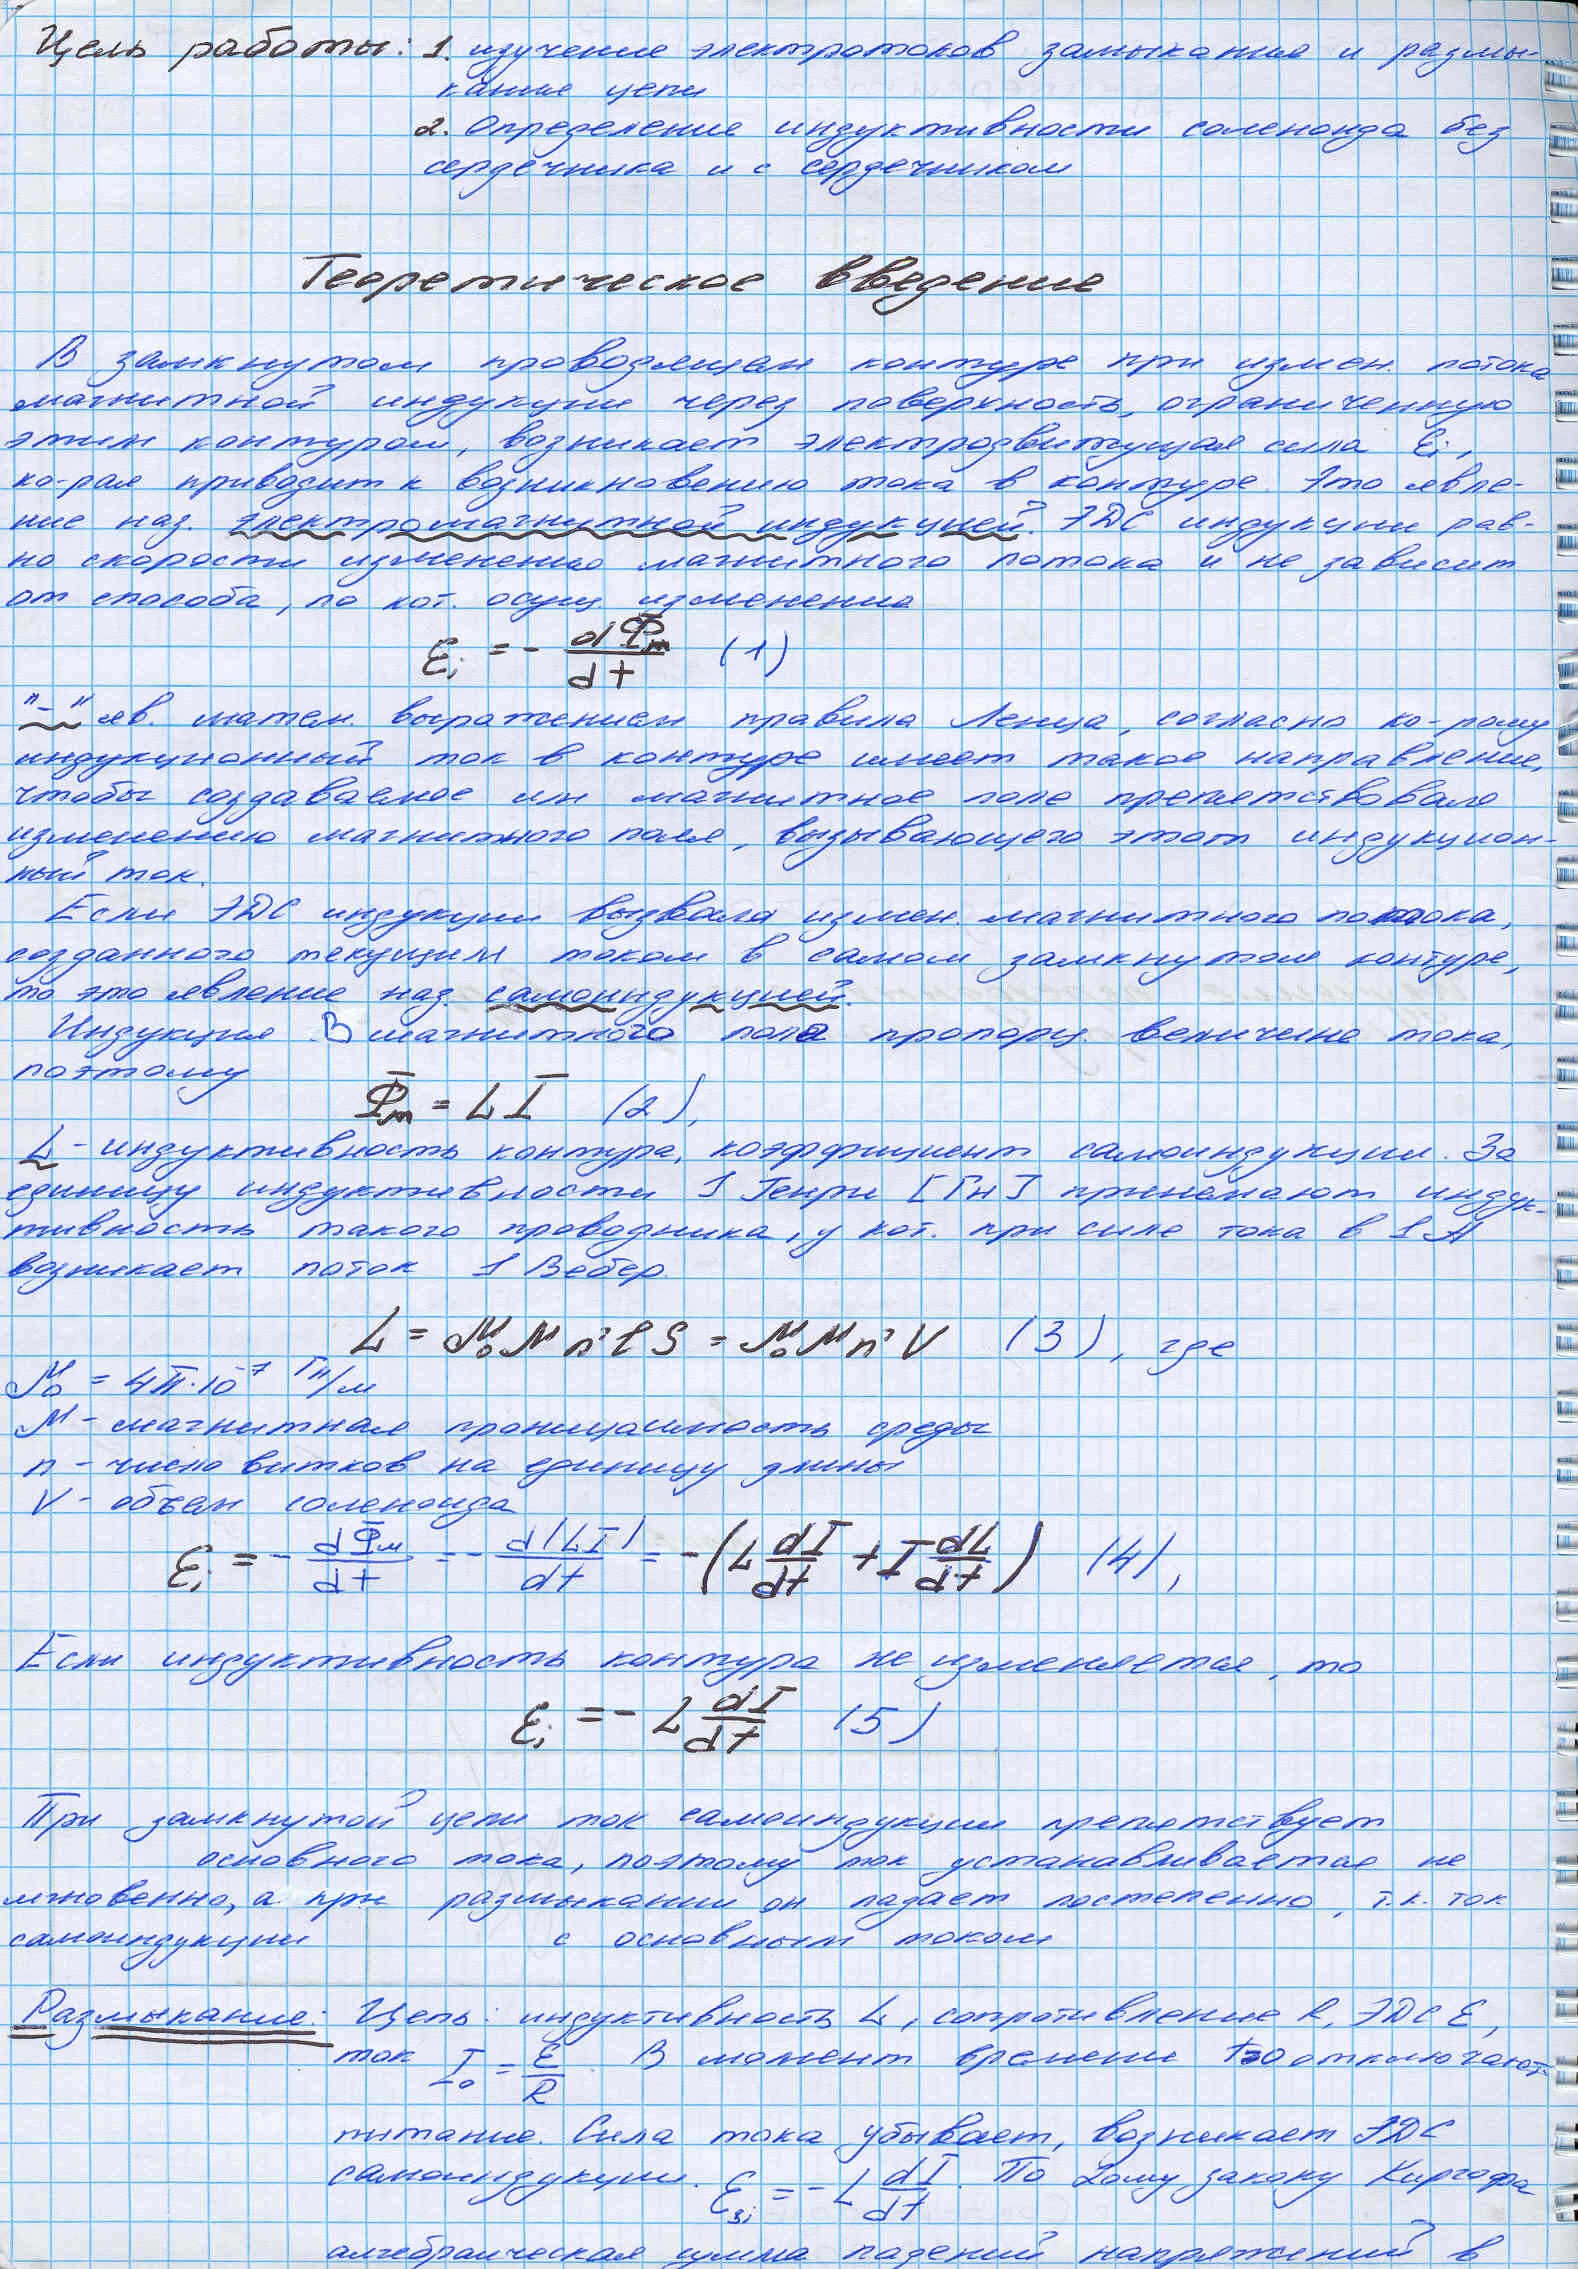 Цель работы: 1. изучение электротоков замыкания и размы-
кания цепи
2. Определение индуктивности соленоида без
сердечника и с сердечником
Теоретическое введение
В замкнутом проводящем контуре при измен. потока
магнитной индукции через поверхность, ограниченную
этим контуром, возникает электродвижущая сила Ei,
ко-рая приводит к возникновению тока в контуре. Это явле-
ние наз. электромагнитной индукцией. ЭДС индукции рав-
на скорости изменению магнитного потока и не зависит
от способа, по кот. осущ. изменение
Ei = - dФm/dt (1)
"-" яв. матем. выражением правила Ленца, согласно ко-рому
индукционный ток в контуре имеет такое направление,
чтобы создаваемое им магнитное поле препятствовало
изменению магнитного поля, вызывающего этот индукцион-
ный ток.
Если ЭДС индукции вызвала измен. магнитного потока,
созданного текущим током в самом замкнутом контуре,
то это явление наз. самоиндукцией.
Индукция B магнитного поля пропорц. величине тока,
поэтому
Фm = LI (2),
L - индуктивность контура, коэффициент самоиндукции. За
единицу индуктивности 1 Генри [Гн] принимают индук-
тивность такого проводника, у кот. при силе тока в 1 А
возникает поток 1 Вебер.
L = μ₀μn²lS = μ₀μn²V (3), где
μ₀ = 4π·10⁻⁷ Гн/м
μ - магнитная проницаемость среды
n - число витков на единицу длины
V - объем соленоида
Ei = - dФм/dt = - d(LI)/dt = -(L dI/dt + I dL/dt) (4),
Если индуктивность контура не изменяется, то
Ei = - L dI/dt (5)
При замкнутой цепи ток самоиндукции препятствует
основного тока, поэтому ток устанавливается не
мгновенно, а при размыкании он падает постепенно, т.к. ток
самоиндукции с основным током
Размыкание: Цепь: индуктивность L, сопротивление R, ЭДС E,
ток I₀ = E/R. В момент времени t=0 отключают
питание. Сила тока убывает, возникает ЭДС
самоиндукции. Esi = - L dI/dt. По 2ому закону Кирхгофа
алгебраическая сумма падений напряжений в